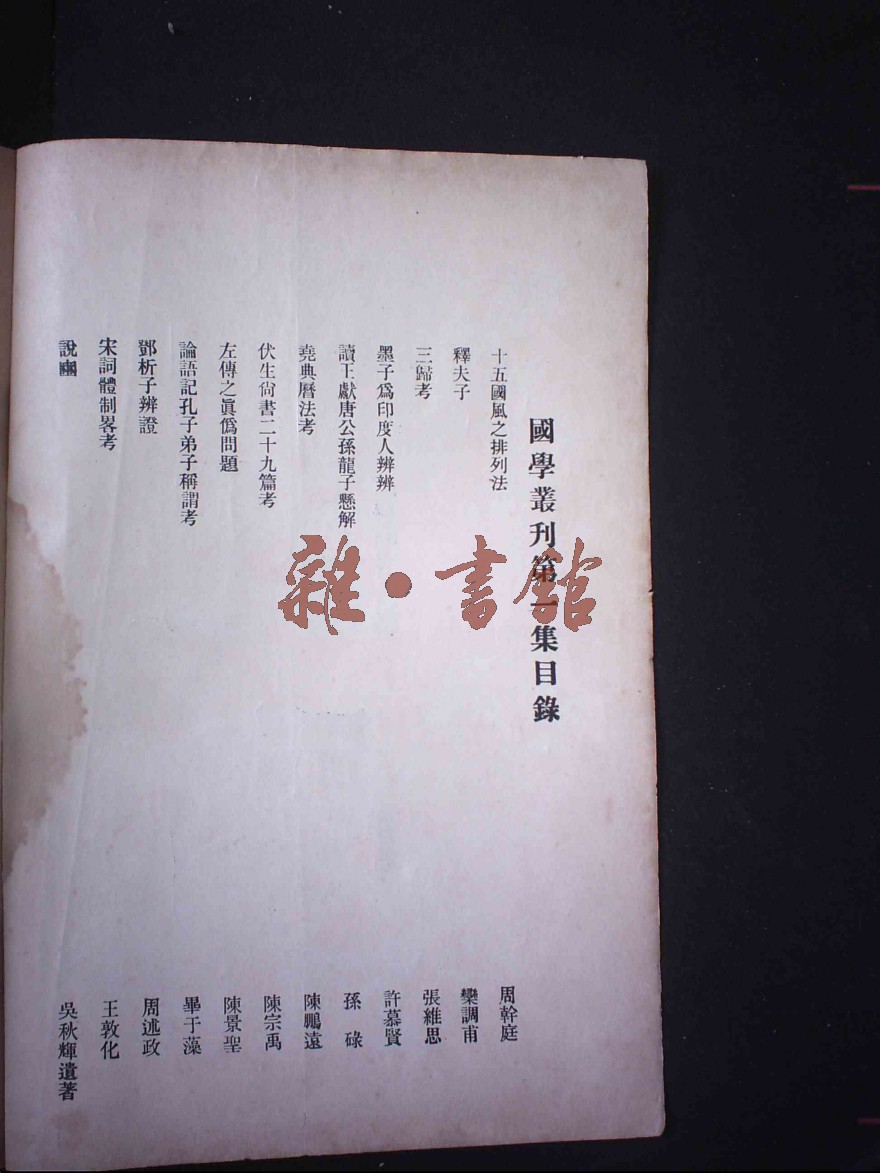 國學叢刋第一集目錄
十五國風之排列法 周幹庭
釋夫子 欒調甫
三歸考 張維思
墨子爲印度人辨辨 許慕賢
讀王獻唐公孫龍子懸解 孫碌
堯典曆法考 陳鵬遠
伏生尙書二十九篇考 陳宗禹
左傳之眞僞問題 陳景聖
論語記孔子弟子稱謂考 畢于藻
鄧析子辨證 周述政
宋詞體制畧考 王敦化
說 吳秋輝遺著
雜·書館